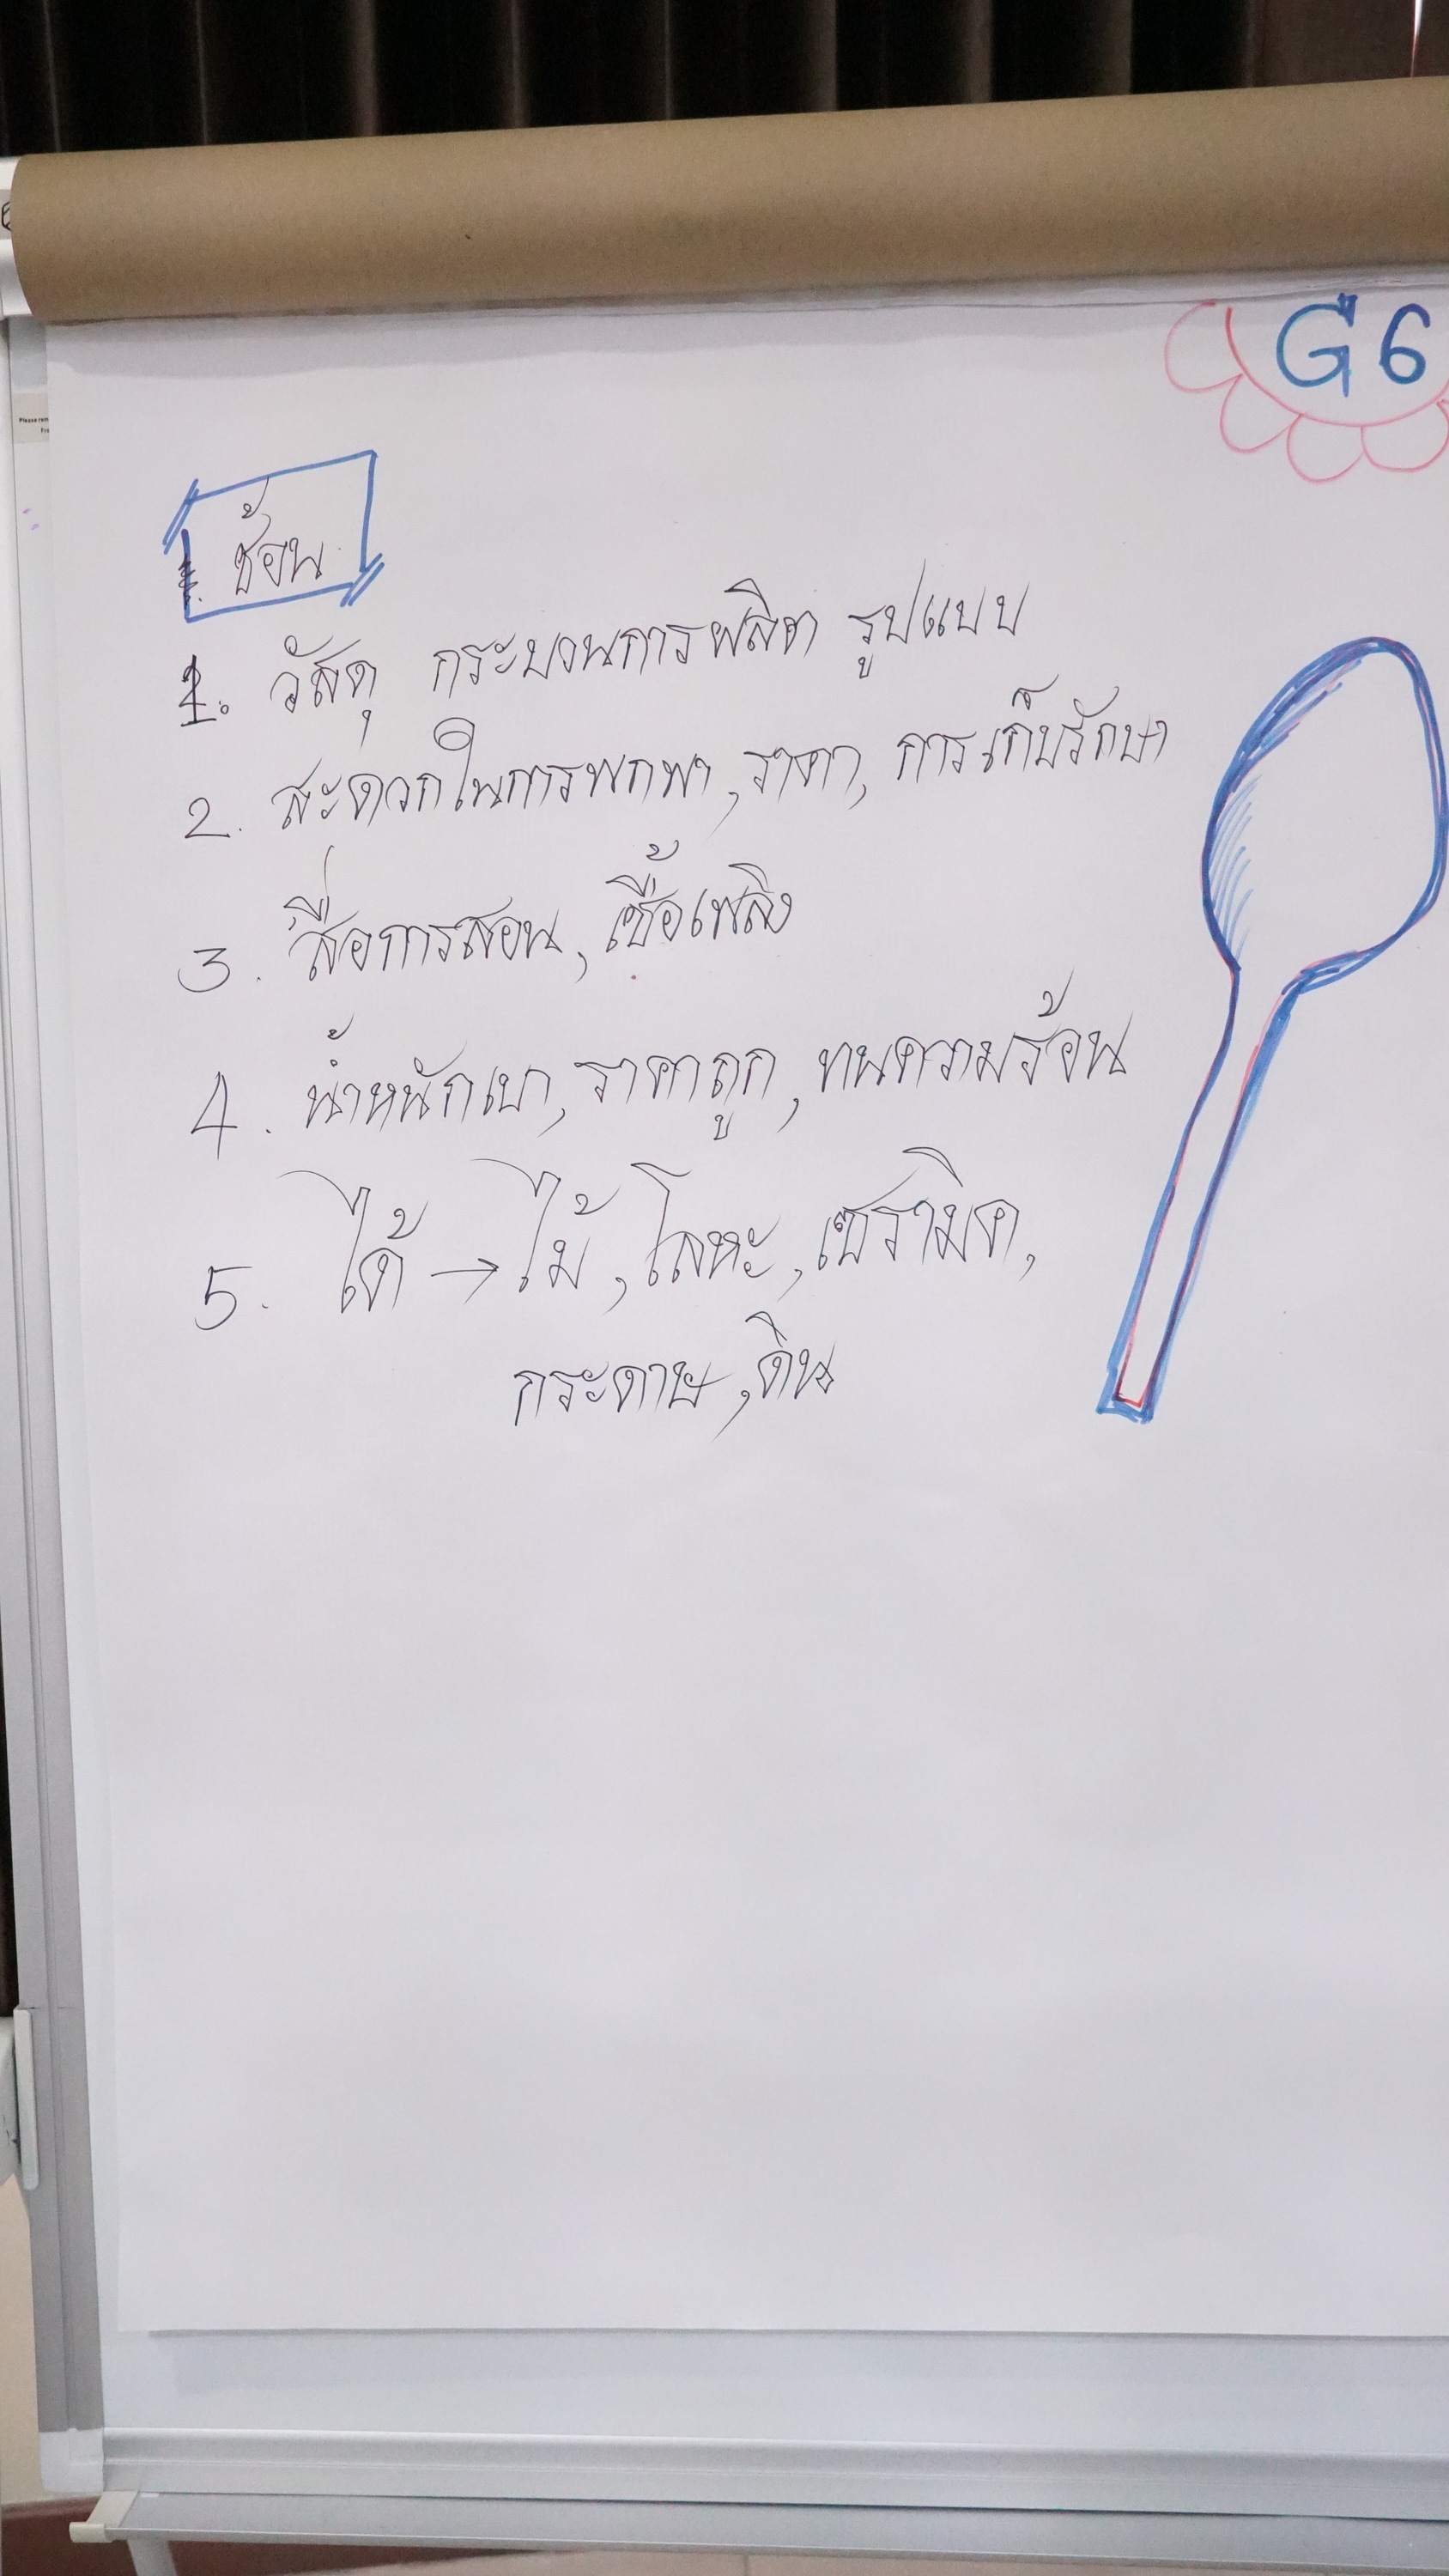 G6
ช้อน
1. วัสดุ กระบวนการผลิต รูปแบบ
2. สะดวกในการพกพา, ราคา, การเก็บรักษา
3. สื่อการสอน, เชื้อเพลิง
4. น้ำหนักเบา, ราคาถูก, ทนความร้อน
5. ได้ → ไม้, โลหะ, เซรามิค,
กระดาษ, ดิน